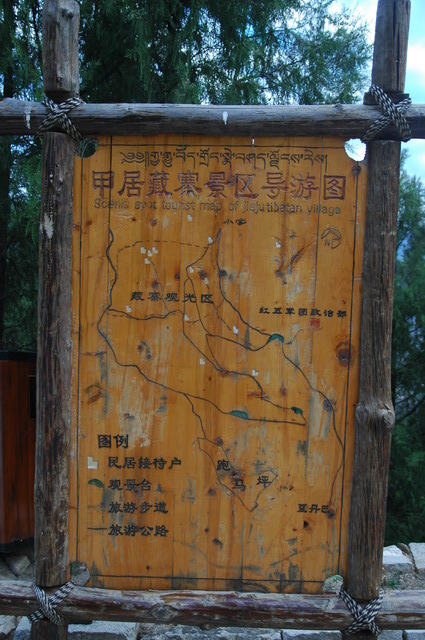 甲居藏寨景区导游图
Scenic spot tourist map of Jiajutibetan village
小学
藏寨观光区
红五军团政治部
图例
民居接待户
观景台
旅游步道
旅游公路
跑马坪
至丹巴